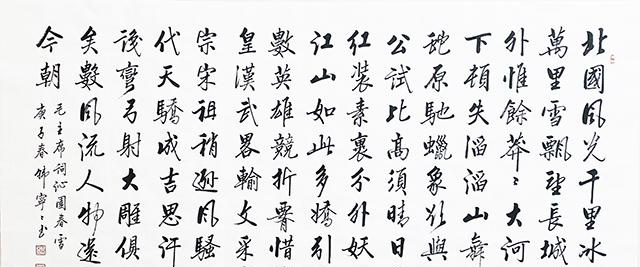 北國風光千里冰
萬里雪飄望長城
外惟餘莽〻大河
下頓失滔滔山舞
蛇原馳蠟象欲與
公試比高須晴日
紅裝素裹分外妖
江山如此多嬌引
數英雄競折腰惜
皇漢武畧輸文采
宗宋祖稍遜風騷
代天驕成吉思汗
識彎弓射大雕俱
矣數風流人物還
今朝
毛主席詞沁園春雪
庚子春